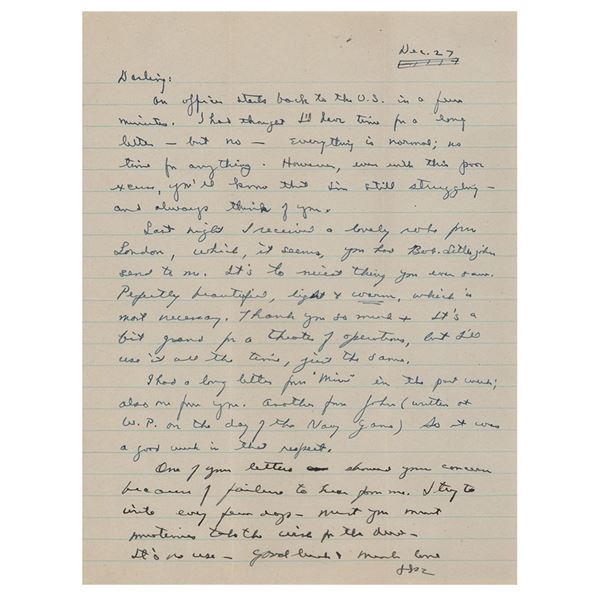 Dec. 27
Darling:
An officer starts back to the U.S. in a few
minutes. I had thought I'd have time for a long
letter - but no - Everything is normal; no
time for anything. However, even with this poor
excuse, you'll know that I'm still struggling -
and always think of you.
Last night I received a lovely robe from
London, which, it seems, you had Bob Littlejohn
send to me. It's the nicest thing you ever saw.
Perfectly beautiful, light & warm, which is
most necessary. Thank you so much + It's a
bit grand for a theater of operations, but I'll
use it all the time, just the same.
I had a long letter from "Mim" in the past week;
also one from you. Another from John (written at
W.P. on the day of the Navy Game) So it was
a good week in that respect.
One of your letters showed your concern
because of failure to hear from me. I try to
write every few days - but you must
sometimes take the wish for the deed -
It's no use - Good luck & much love